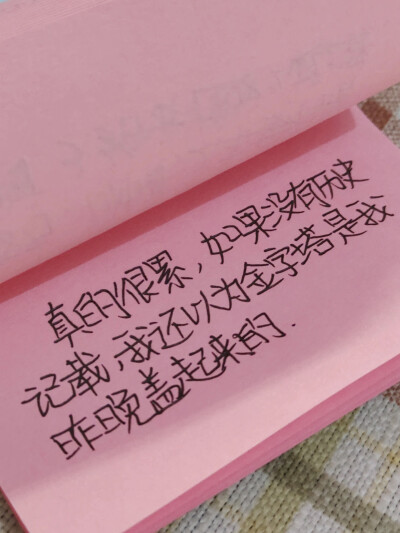 真的很累，如果没有历史
记载，我还以为金字塔是我
昨晚盖起来的.